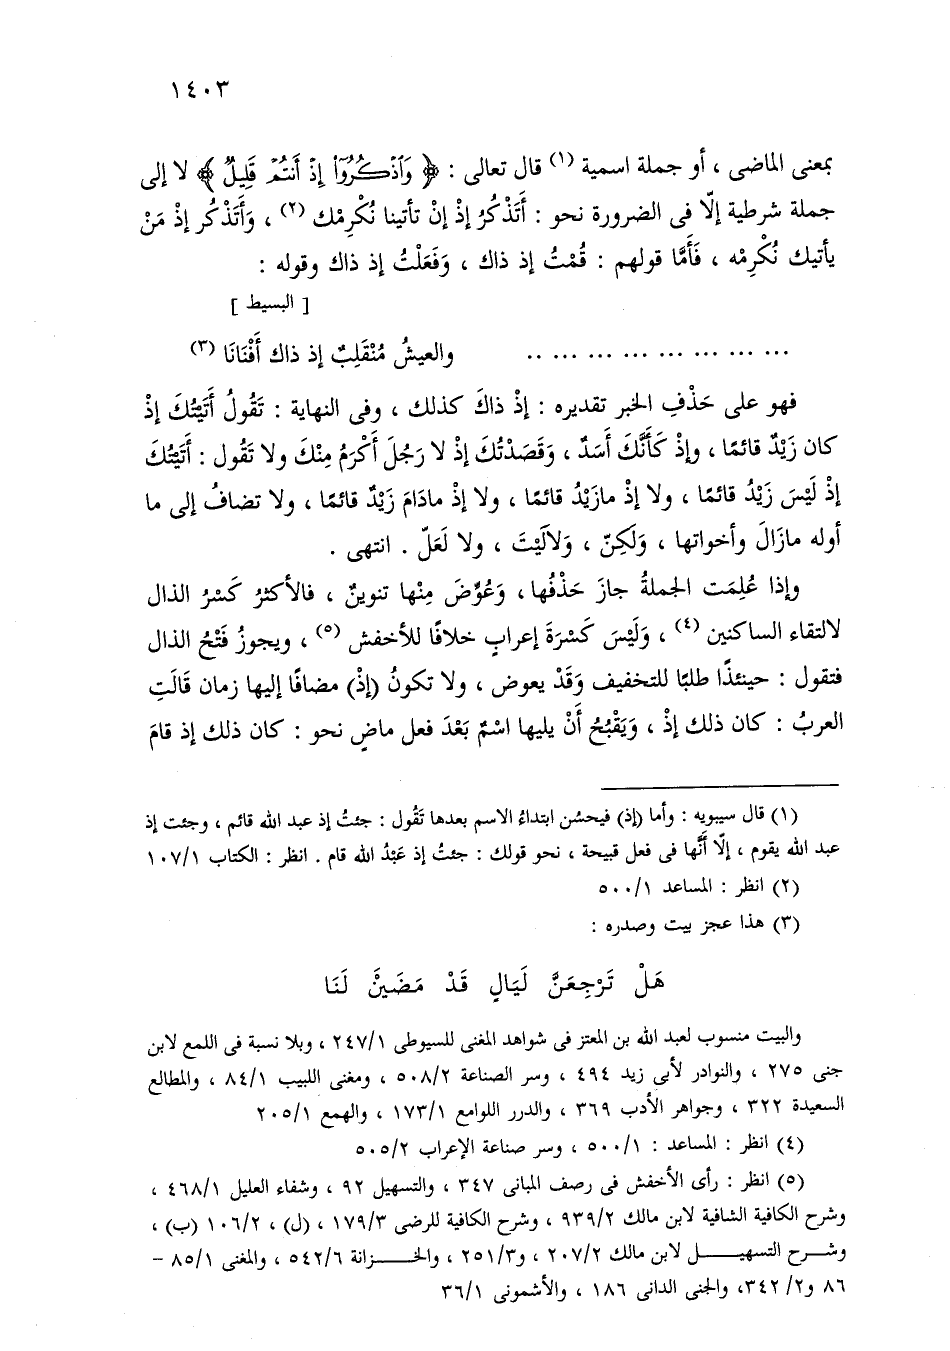 ١٤٠٣
بمعنى الماضى ، أو جملة اسمية (١) قال تعالى : ﴿ وَٱذْكُرُوٓا۟ إِذْ أَنتُمْ قَلِيلٌ ﴾ لا إلى
جملة شرطية إلّا فى الضرورة نحو : أَتَذْكُرُ إذْ إنْ تأتينا نُكْرِمْك (٢) ، وَأَتَذْكُر إذ مَنْ
يأتيك نُكْرِمْه ، فَأَمَّا قولهم : قُمْتُ إذ ذاك ، وَفَعَلْتُ إذ ذاك وقوله :
[ البسيط ]
... ... ... ... ... ... ... .. والعيشُ مُنْقَلِبٌ إذ ذاك أَفْنَانَا (٣)
فهو على حَذْفِ الخبر تقديره : إذْ ذاكَ كذلك ، وفى النهاية : تَقُولُ أَتَيْتُكَ إذْ
كان زَيْدٌ قائمًا ، وإذْ كَأَنَّكَ أَسَدٌ ، وَقَصَدْتُكَ إذْ لا رَجُلَ أَكْرَمُ مِنْكَ ولا تَقُول : أَتَيْتُكَ
إذْ لَيْسَ زَيْدُ قائمًا ، ولا إذْ مازَيْدُ قائمًا ، ولا إذْ مادَامَ زَيْدٌ قائمًا ، ولا تضافُ إلى ما
أوله مازَالَ وأخواتها ، وَلَكِنّ ، وَلاَلَيْتَ ، ولا لَعَلّ . انتهى .
وإذا عُلِمَت الجملةُ جازَ حَذْفُها ، وَعُوِّضَ مِنْها تنوينٌ ، فالأكثرُ كَسْرُ الذال
لالتقاء الساكنين (٤) ، وَلَيْسَ كَسْرَةَ إعرابٍ خلافًا للأخفش (٥) ، ويجوزُ فَتْحُ الذال
فتقول : حينئذًا طلبًا للتخفيف وَقَدْ يعوض ، ولا تكونُ (إذْ) مضافًا إليها زمان قَالَتِ
العربُ : كان ذلك إذْ ، وَيَقْبُحُ أَنْ يليها اسْمٌ بَعْدَ فعل ماضٍ نحو : كان ذلك إذ قامَ
(١) قال سيبويه : وأما (إذ) فيحسُن ابتداءُ الاسم بعدها تَقُول : جئتُ إذ عبد الله قائم ، وجئت إذ
عبد الله يقوم ، إلّا أَنَّها فى فعل قبيحة ، نحو قولك : جئتُ إذ عَبْدُ الله قام . انظر : الكتاب ١٠٧/١
(٢) انظر : المساعد ٥٠٠/١
(٣) هذا عجز بيت وصدره :
هَلْ تَرْجِعَنَّ لَيَالٍ قَدْ مَضَيْنَ لَنَا
والبيت منسوب لعبد الله بن المعتز فى شواهد المغنى للسيوطى ٢٤٧/١ ، وبلا نسبة فى اللمع لابن
جنى ٢٧٥ ، والنوادر لأبى زيد ٤٩٤ ، وسر الصناعة ٥٠٨/٢ ، ومغنى اللبيب ٨٤/١ ، والمطالع
السعيدة ٣٢٢ ، وجواهر الأدب ٣٦٩ ، والدرر اللوامع ١٧٣/١ ، والهمع ٢٠٥/١
(٤) انظر : المساعد : ٥٠٠/١ ، وسر صناعة الإعراب ٥٠٥/٢
(٥) انظر : رأى الأخفش فى رصف المبانى ٣٤٧ ، والتسهيل ٩٢ ، وشفاء العليل ٤٦٨/١ ،
وشرح الكافية الشافية لابن مالك ٩٣٩/٢ ، وشرح الكافية للرضى ١٧٩/٣ ، (ل) ، ١٠٦/٢ (ب) ،
وشرح التسهيل لابن مالك ٢٠٧/٢ ، و٢٥١/٣ ، والخزانة ٥٤٢/٦ ، والمغنى ٨٥/١ –
٨٦ و٣٤٢/٢، والجنى الدانى ١٨٦ ، والأشمونى ٣٦/١